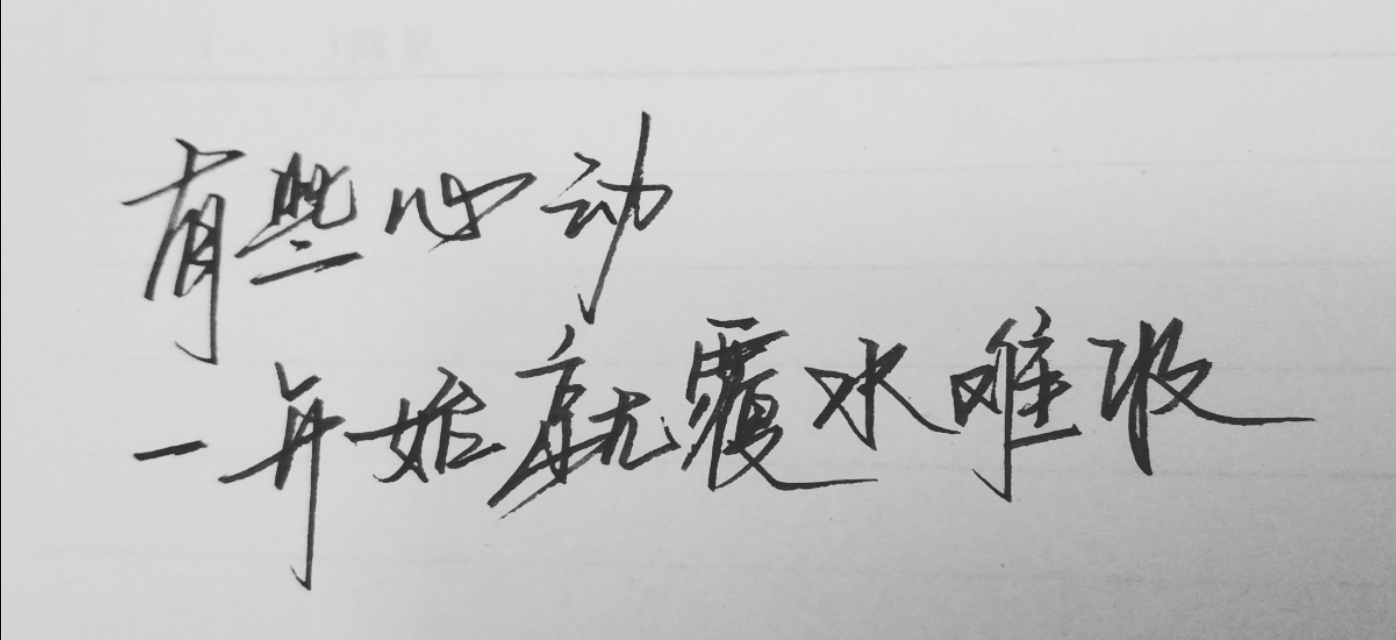 有些心动
一开始就覆水难收